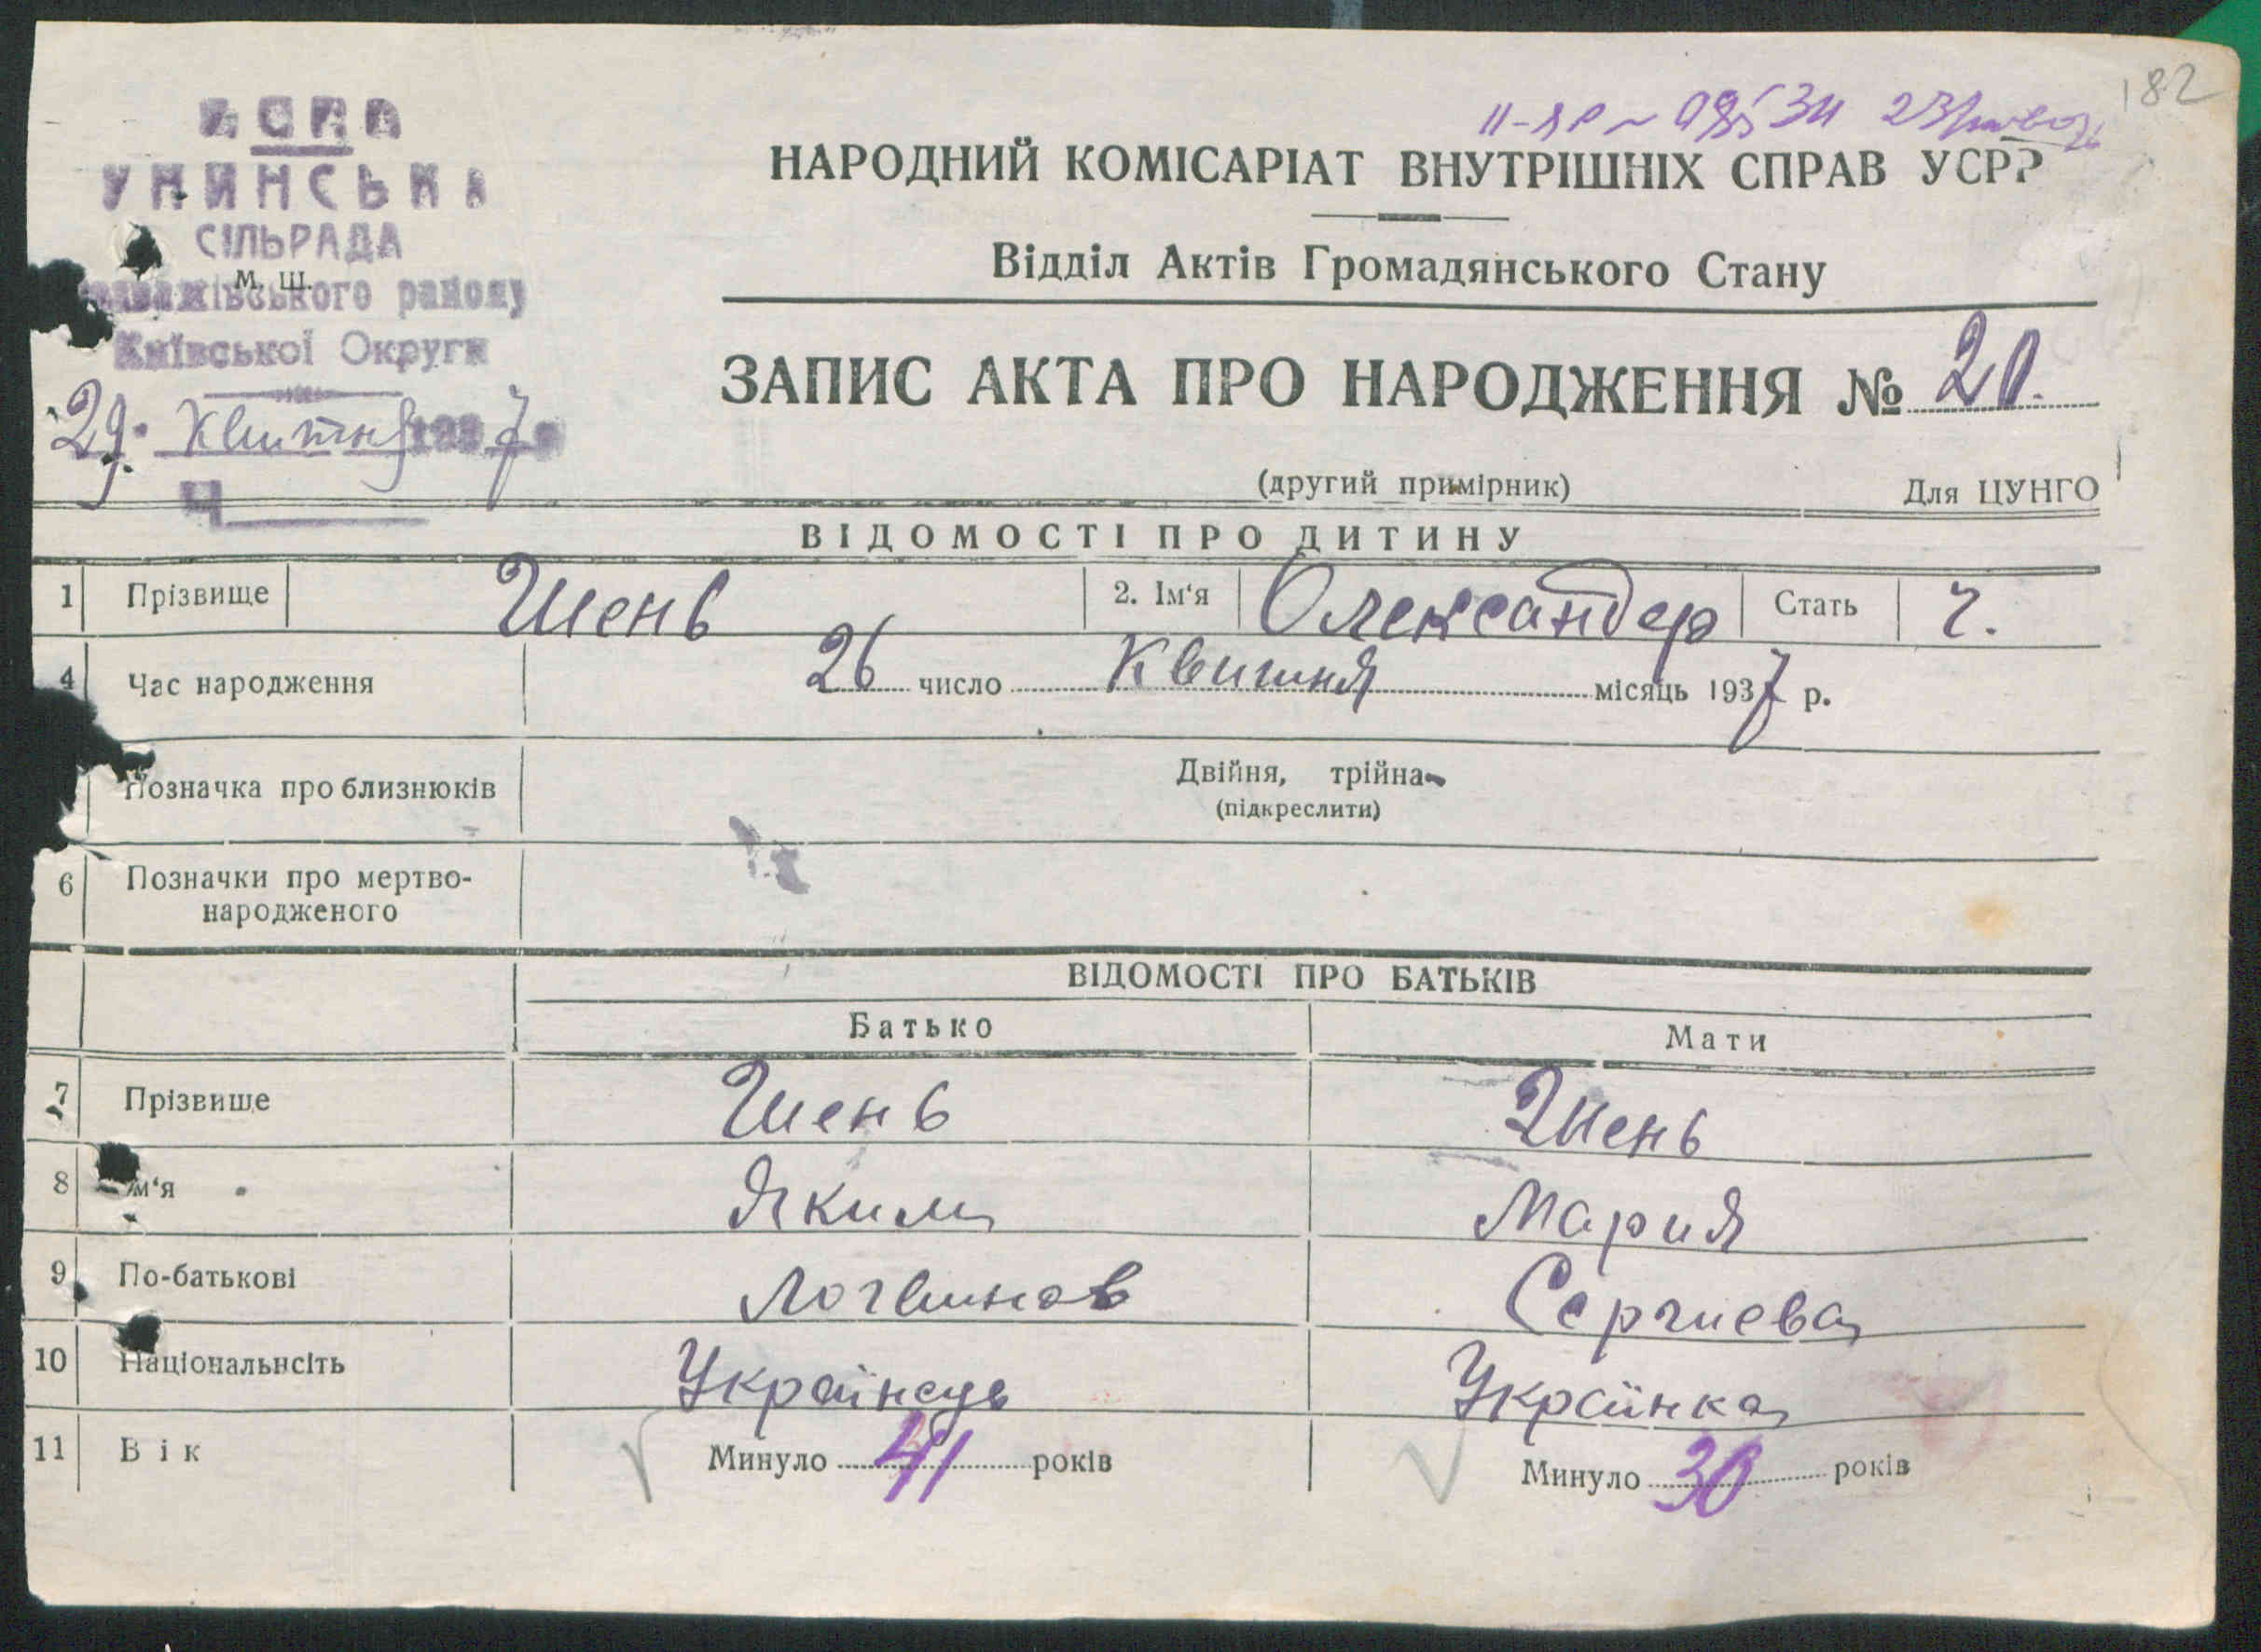 182
II-ЯР
УСРР
УНИНСЬКА
СІЛЬРАДА
М. Ш.
району
Київської Округи
29. Квітня 1937
Ч
НАРОДНИЙ КОМІСАРІАТ ВНУТРІШНІХ СПРАВ УСРР
Відділ Актів Громадянського Стану
ЗАПИС АКТА ПРО НАРОДЖЕННЯ № 20.
(другий примірник) Для ЦУНГО
ВІДОМОСТІ ПРО ДИТИНУ
1 Прізвище Шень 2. Ім‘я Олександер Стать ч.
4 Час народження 26 число Квитня місяць 1937 р.
Позначка про близнюків Двійня, трійня
(підкреслити)
6 Позначки про мертво-
народженого
ВІДОМОСТІ ПРО БАТЬКІВ
Батько Мати
7 Прізвище Шень Шень
8 Ім‘я Яким Мария
9 По-батькові Логвинов Сергиева
10 Національнсіть Українець Українка
11 Вік Минуло 41 років Минуло 30 років